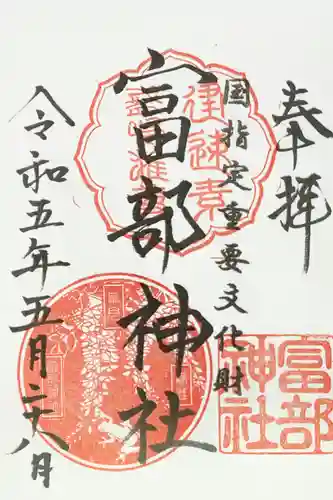 奉拝
国指定重要文化財
富部神社
令和五年五月二十八日
富部
神社